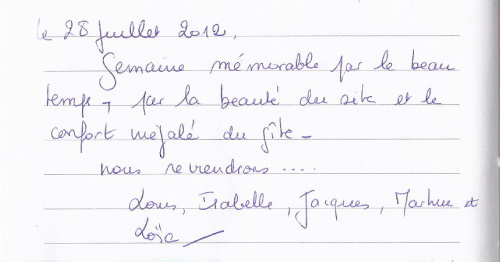 Le 28 Juillet 2012,
Semaine mémorable par le beau
temps, par la beauté du site et le
confort inégalé du gîte -
nous reviendrons ....
Louis, Isabelle, Jacques, Marhue et
Loïc